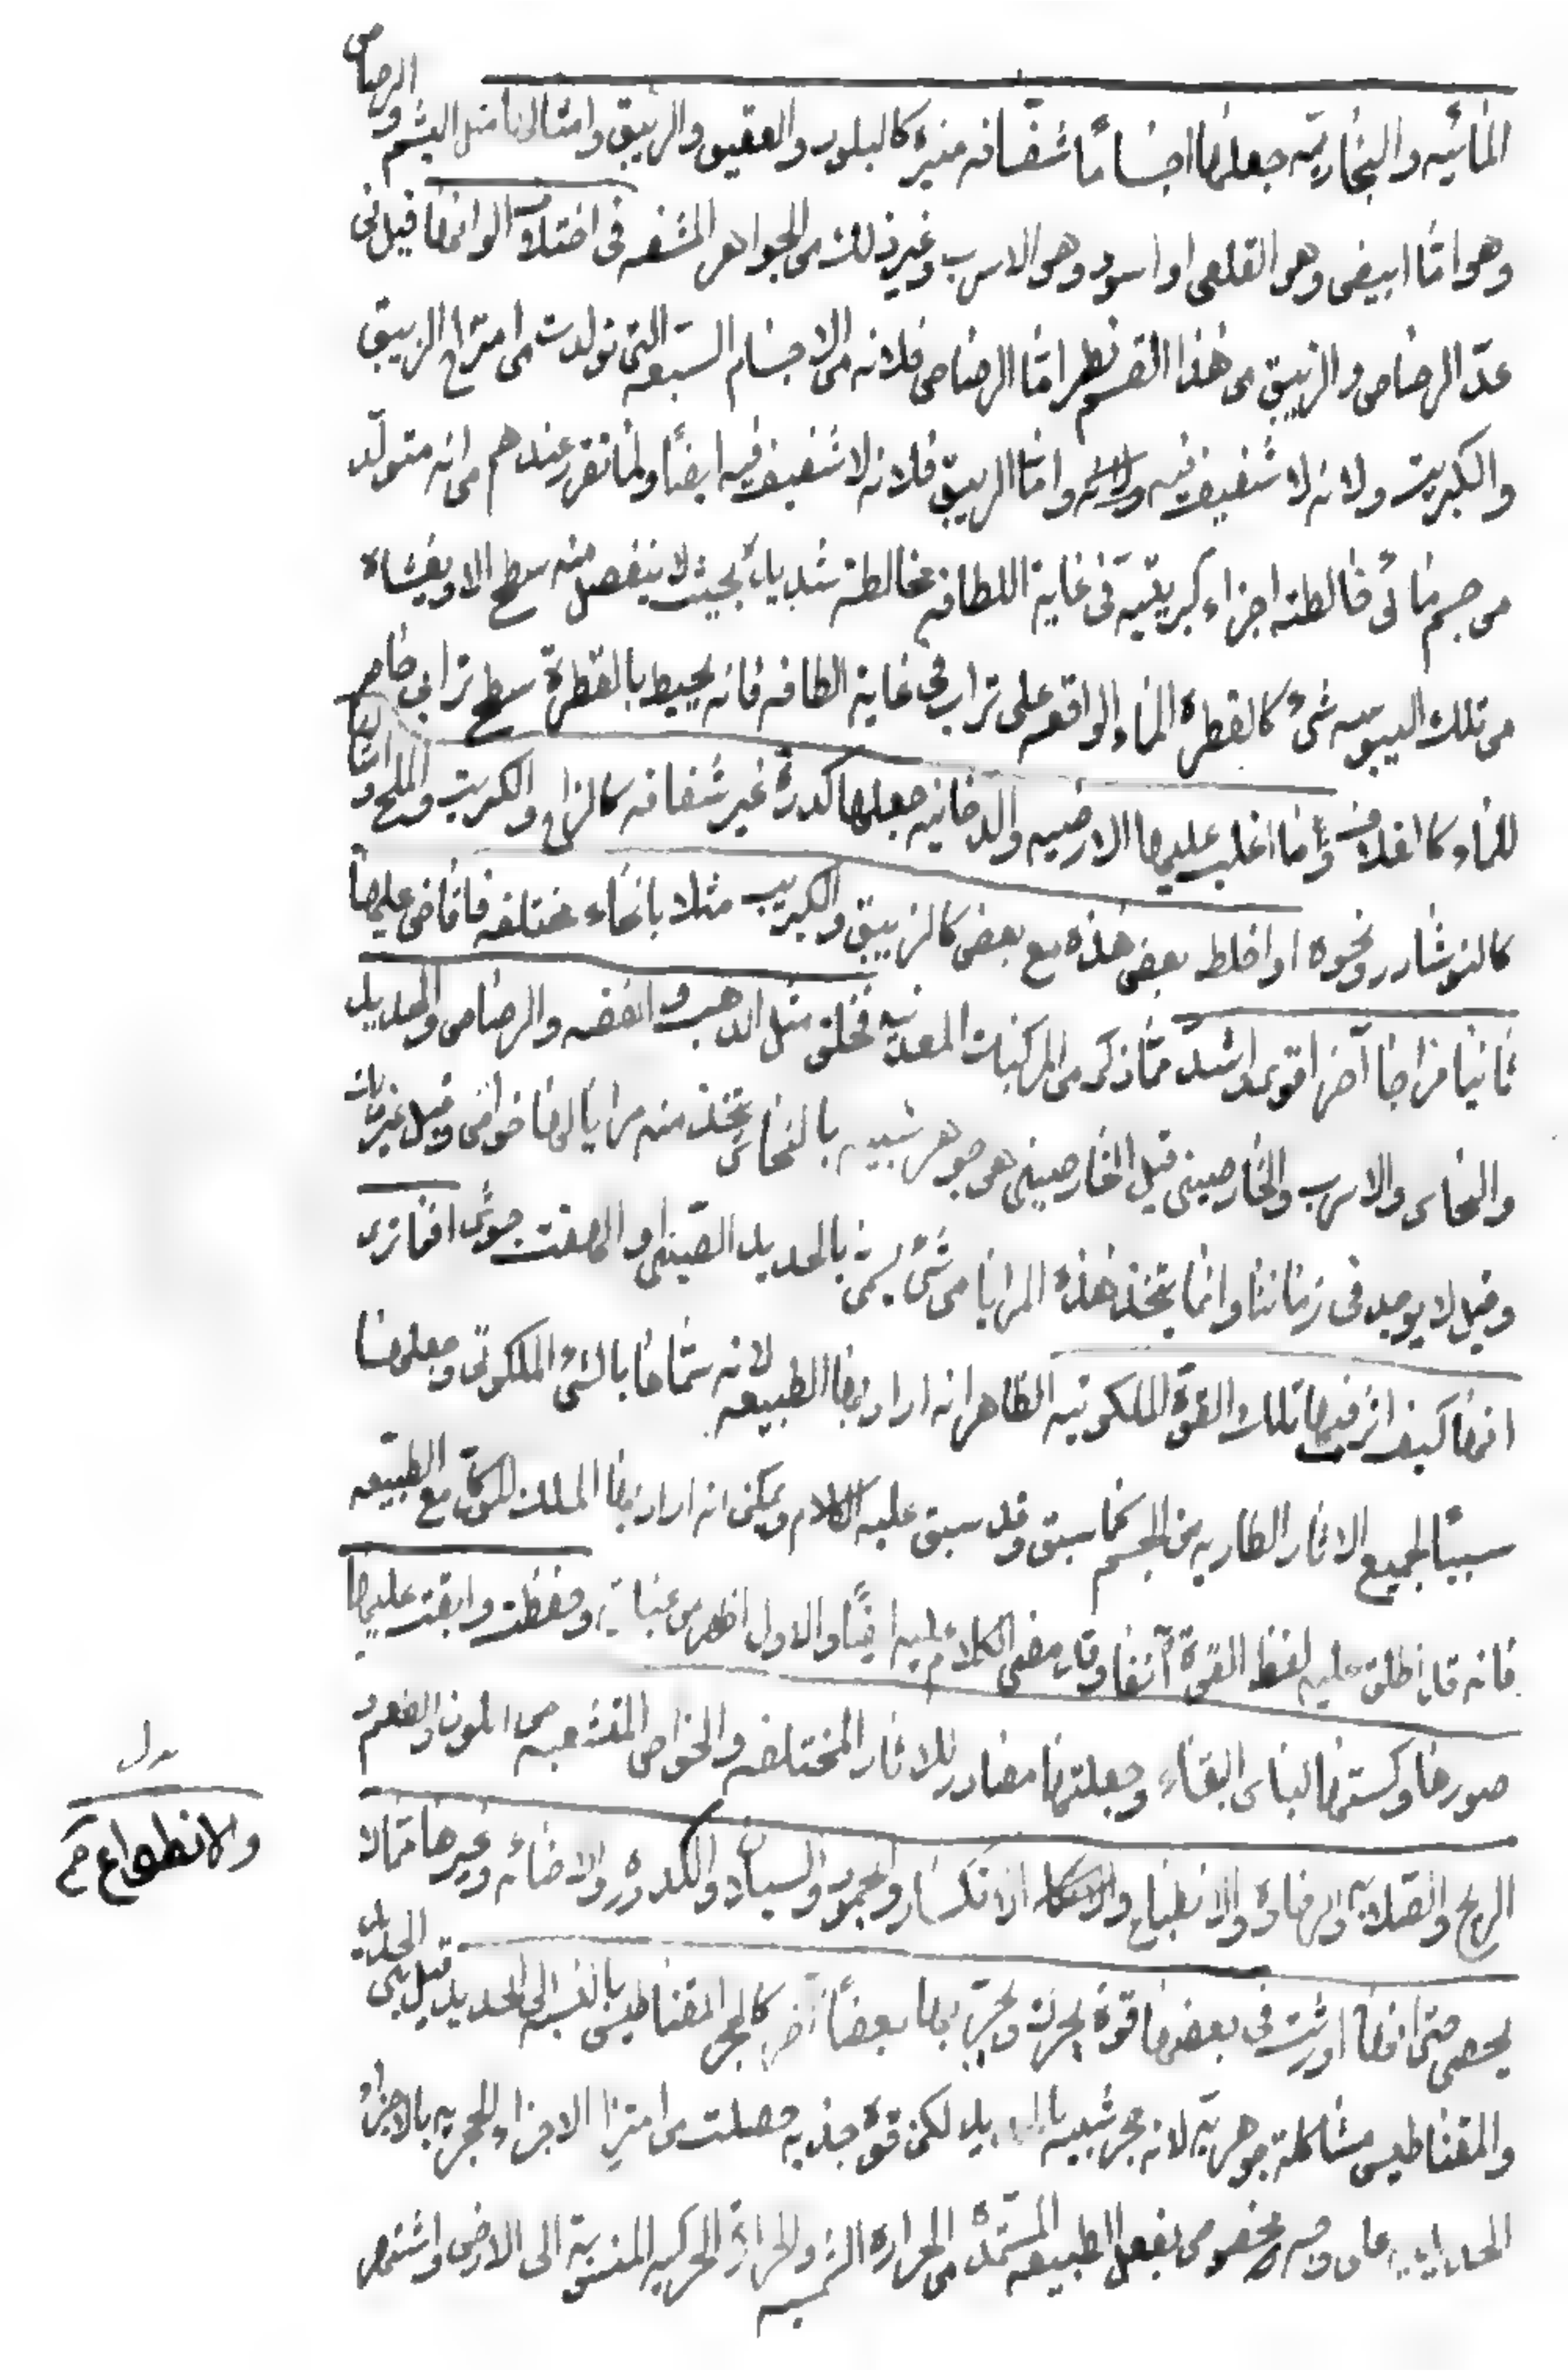 المائيه والبخاريّه جعلها اجساماً شفّافه منيرة كالبلور والعقيق والزيبق وامثالها مثل اليشم والرصاص
وهو امّا ابيض وهو القلعى او اسود وهو الاسرب وغير ذلك من الجواهر المشفه فى اختلاف الوانها قيل فى
عدّ الرصاص والزيبق من هذا القسم نظر امّا الرصاص فلانه من الاجسام السبعه التى تولدت من امتزاج الزيبق
والكبريت ولانه لا شفيف فيه وامّا الزيبق فلانه لا شفيف فيه ايضاً ولما تقرر عندهم من انه متولّد
من جسم مائى خالطته اجزاء كبريتيّه فى غاية اللطافه مخالطة شديدة بحيث لا ينفصل منه سطح الا ويغشاه
من تلك اليبوسه شىء كالقطرة الماء الواقعه على تراب فى غاية الطافه فانه يحيط بالقطرة سطح ترابى حاصر
للماء كالغلاف وامّا اغلب عليها الارضيه والدخانيه جعلها كدرة غير شفافه كالزاج والكبريت والملح وامثالها
كالنوشادر ونحوه او اخلط بعض هذه مع بعض كالزيبق والكبريت مثلا بانحاء مختلفه فافاض عليها
ثانيا مزاجا آخر اقوى واشدّ ممّا ذكر من المركبات المعدنيه فخلق مثل الذهب والفضه والرصاص والحديد
والنحاس والاسرب والخارصينى قيل الخارصينى هو جوهر شبيه بالنحاس يتخذ منه مرايا لها خواص وقيل
وقيل لا يوجد فى زماننا وانما يتخذ هذه المرايا من شىء يسمى بالحديد الصّينى
انها كيف اثر فيها تلك القوة الملكوتيه الظاهر انه اراد بها الطبيعه لانه سمّاها بالشىء الملكوتى وجعلها
سببًا لجميع الاثار الطاريه من الجسم كما سبق وقد سبق عليه الكلام ويمكن انه اراد بها الملك الموكّل مع الطبيعه
فانه قد اطلق عليه لفظ القوة آنفا وقد مضى الكلام عليه ايضًا والاول اظهر من عباراته وحفظت وابقت عليها
صورها وكستها لباس البقاء وجعلتها مصادر للاثار المختلفه والخواص المتشعبه من اللون والطعم و
الريح والصّلابه والرخاوة والانطباع والانكسار والجمود والسيلان والكدورة والاضائه وغيرها ممّا لا
يحصى حتى انها اورثت فى بعضها قوة يحرك ويجرّ بها بعضاً آخر كالحجر المقناطيس بالنسبه الى الحديد قيل بين الحديد
والمقناطيس مشاكلة جوهريّه لانه حجر شبيه بالحديد لكن قوة جذبه حصلت من امتزاج الاجزاء الحجريه بالاجزاء
الحديديه على وجه مخصوص بفعل الطبيعه المستمدّة من الحرارة الشمسيه والحرارة الحركيه المنسوبة الى الارض واشتهر
بدل
والانطواع خ